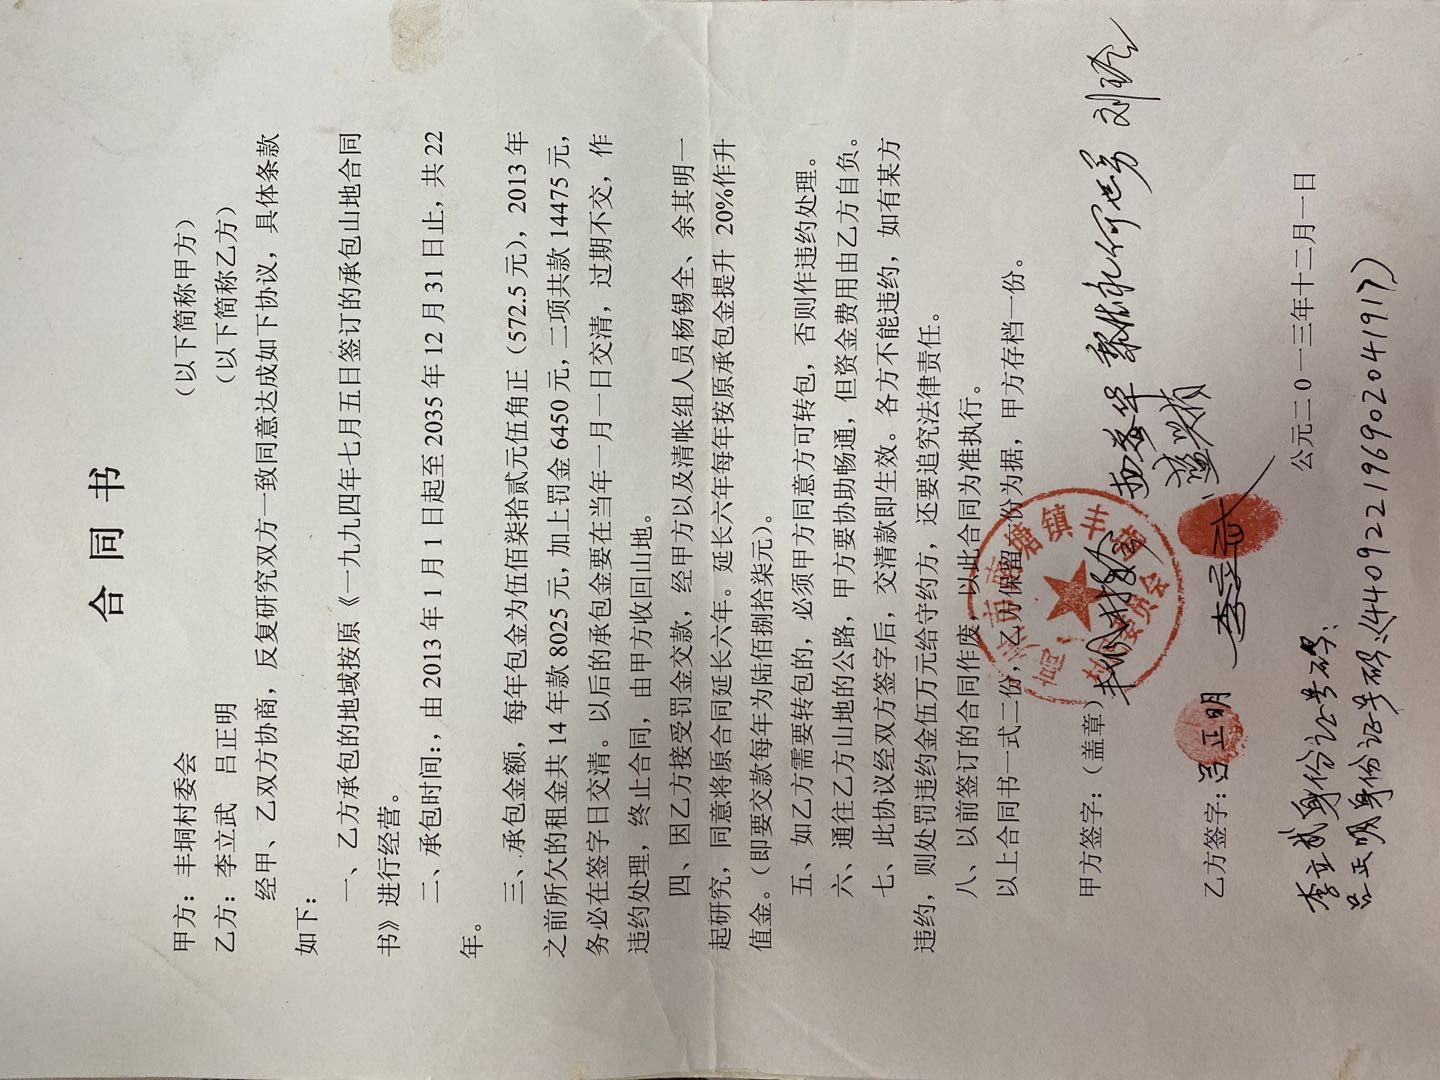 合同书
甲方：丰垌村委会 （以下简称甲方）
乙方：李立武 吕正明 （以下简称乙方）
经甲、乙双方协商，反复研究双方一致同意达成如下协议，具体条款
如下：
一、乙方承包的地域按原《一九九四年七月五日签订的承包山地合同
书》进行经营。
二、承包时间：，由 2013 年 1 月 1 日起至 2035 年 12 月 31 日止，共 22
年。
三、承包金额，每年包金为伍佰柒拾贰元伍角正（572.5 元），2013 年
之前所欠的租金共 14 年款 8025 元，加上罚金 6450 元，二项共款 14475 元，
务必在签字日交清。以后的承包金要在当年一月一日交清，过期不交，作
违约处理，终止合同，由甲方收回山地。
四、因乙方接受罚金交款，经甲方以及清帐组人员杨锡全、余其明一
起研究，同意将原合同延长六年。延长六年每年按原承包金提升 20%作升
值金。（即要交款每年为陆佰捌拾柒元）。
五、如乙方需要转包的，必须甲方同意方可转包，否则作违约处理。
六、通往乙方山地的公路，甲方要协助畅通，但资金费用由乙方自负。
七、此协议经双方签字后，交清款即生效。各方不能违约，如有某方
违约，则处罚违约金伍万元给守约方，还要追究法律责任。
八、以前签订的合同作废，以此合同为准执行。
以上合同书一式二份，乙方保留一份为据，甲方存档一份。
甲方签字：（盖章）
乙方签字：吕正明 李立武
公元二0一三年十二月一日
李立武身份证号码：
吕正明身份证号码：（440922196902041917）